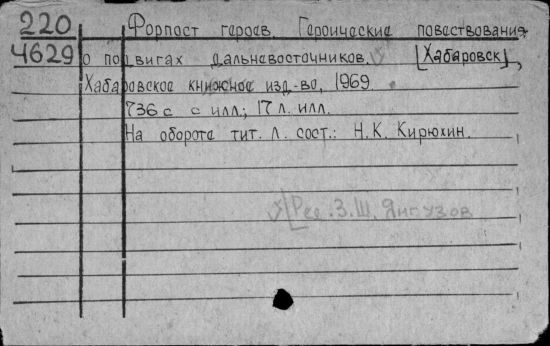 220 Форпост героев. Героические повествования
4629 о подвигах дальневосточников. [Хабаровск],
Хабаровское книжное изд-во, 1969
736 с. с илл.; 17 л. илл.
На обороте тит. л. сост.: Н.К. Кирюхин.
[Рec. З.Ш. Янгузов